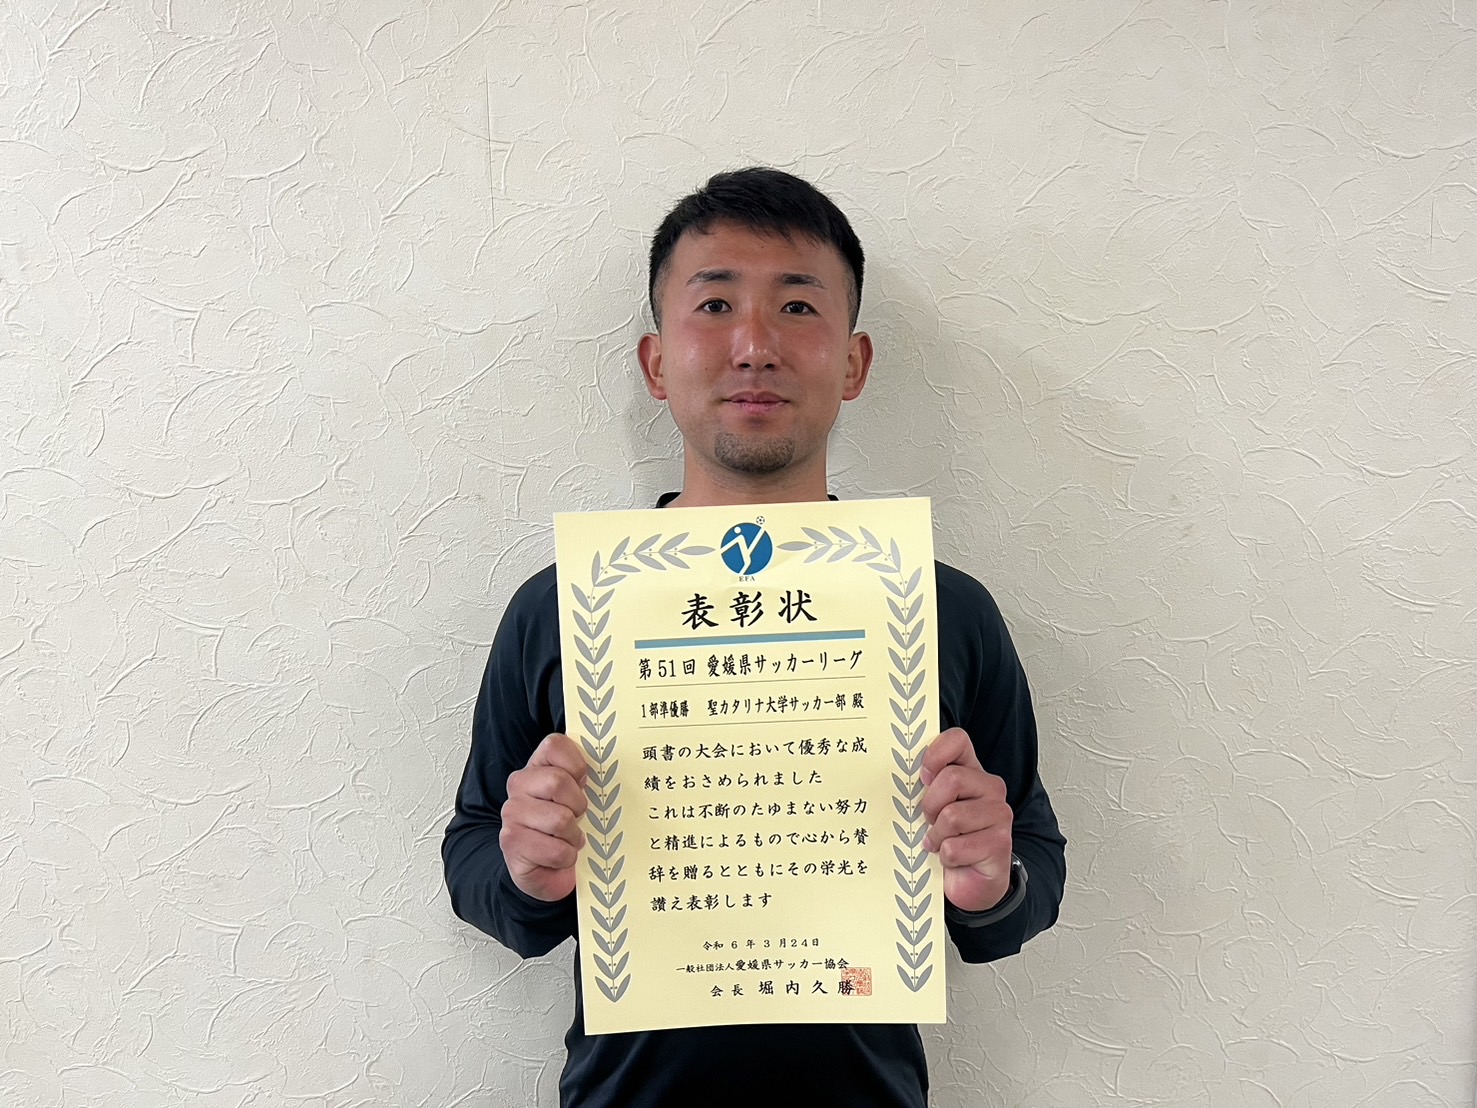 EFA
表彰状
第51回 愛媛県サッカーリーグ
1部準優勝 聖カタリナ大学サッカー部 殿
頭書の大会において優秀な成
績をおさめられました
これは不断のたゆまない努力
と精進によるもので心から賛
辞を贈るとともにその栄光を
讃え表彰します
令和 6 年 3 月24日
一般社団法人愛媛県サッカー協会
会長 堀内久勝